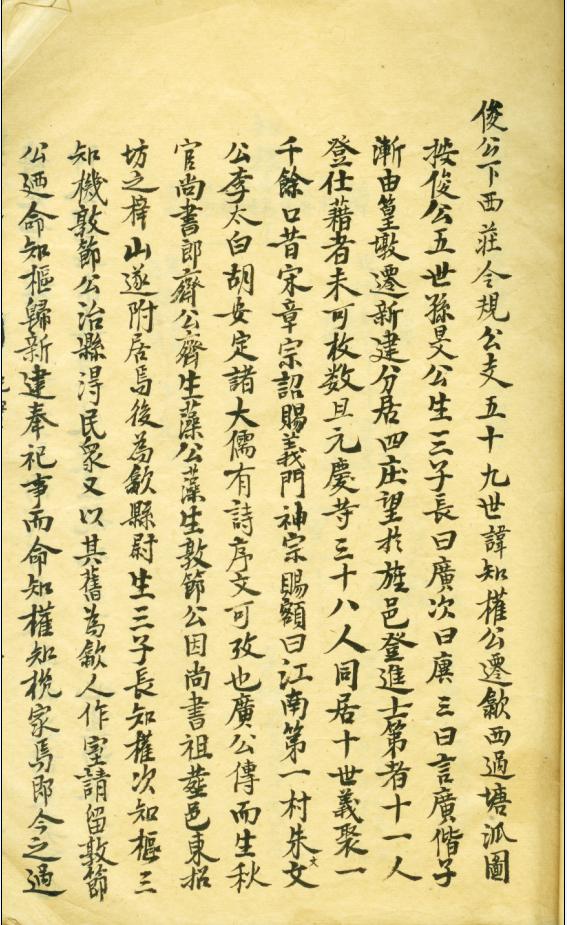 俊公下西莊令規公支五十九世諱知權公遷歙西過塘派圖
按俊公五世孫旻公生三子長曰廣次曰廙三曰言廣偕子
漸由篁墩遷新建分居四庄望扵旌邑登進士第者十一人
登仕藉者未可枚数且元慶等三十八人同居十世義聚一
千餘口昔宋章宗詔賜義門神宗賜額曰江南第一村朱文
公李太白胡安定諸大儒有詩序文可攷也廣公傳而生秋
官尚書郎齊公齊生藻公藻生敦節公因尚書祖塟邑東招
坊之梓山遂附居焉後為歙縣尉生三子長知權次知樞三
知機敦節公治縣淂民衆又以其舊為歙人作室請留敦節
公廼命知樞歸新建奉祀事而命知權知機家焉即今之過